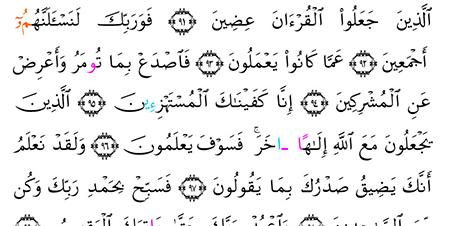 اَ۬لذِينَ جَعَلُواْ اُ۬لْقُرْءَانَ عِضِينَ ﴿٩١﴾ فَوَرَبِّكَ لَنَسْـَٔلَنَّهُمُۥٓ
أَجْمَعِينَ ﴿٩٢﴾ عَمَّا كَانُواْ يَعْمَلُونَ ﴿٩٣﴾ فَاصْدَعْ بِمَا تُومَرُ وَأَعْرِضْ
عَنِ اِ۬لْمُشْرِكِينَ ﴿٩٤﴾ إِنَّا كَفَيْنَٰكَ اَ۬لْمُسْتَهْزِءِينَ ﴿٩٥﴾ اَ۬لذِينَ
يَجْعَلُونَ مَعَ اَ۬للَّهِ إِلَٰهًا ـاخَرَۖ فَسَوْفَ يَعْلَمُونَ ﴿٩٦﴾ وَلَقَدْ نَعْلَمُ
أَنَّكَ يَضِيقُ صَدْرُكَ بِمَا يَقُولُونَ ﴿٩٧﴾ فَسَبِّحْ بِحَمْدِ رَبِّكَ وَكُن